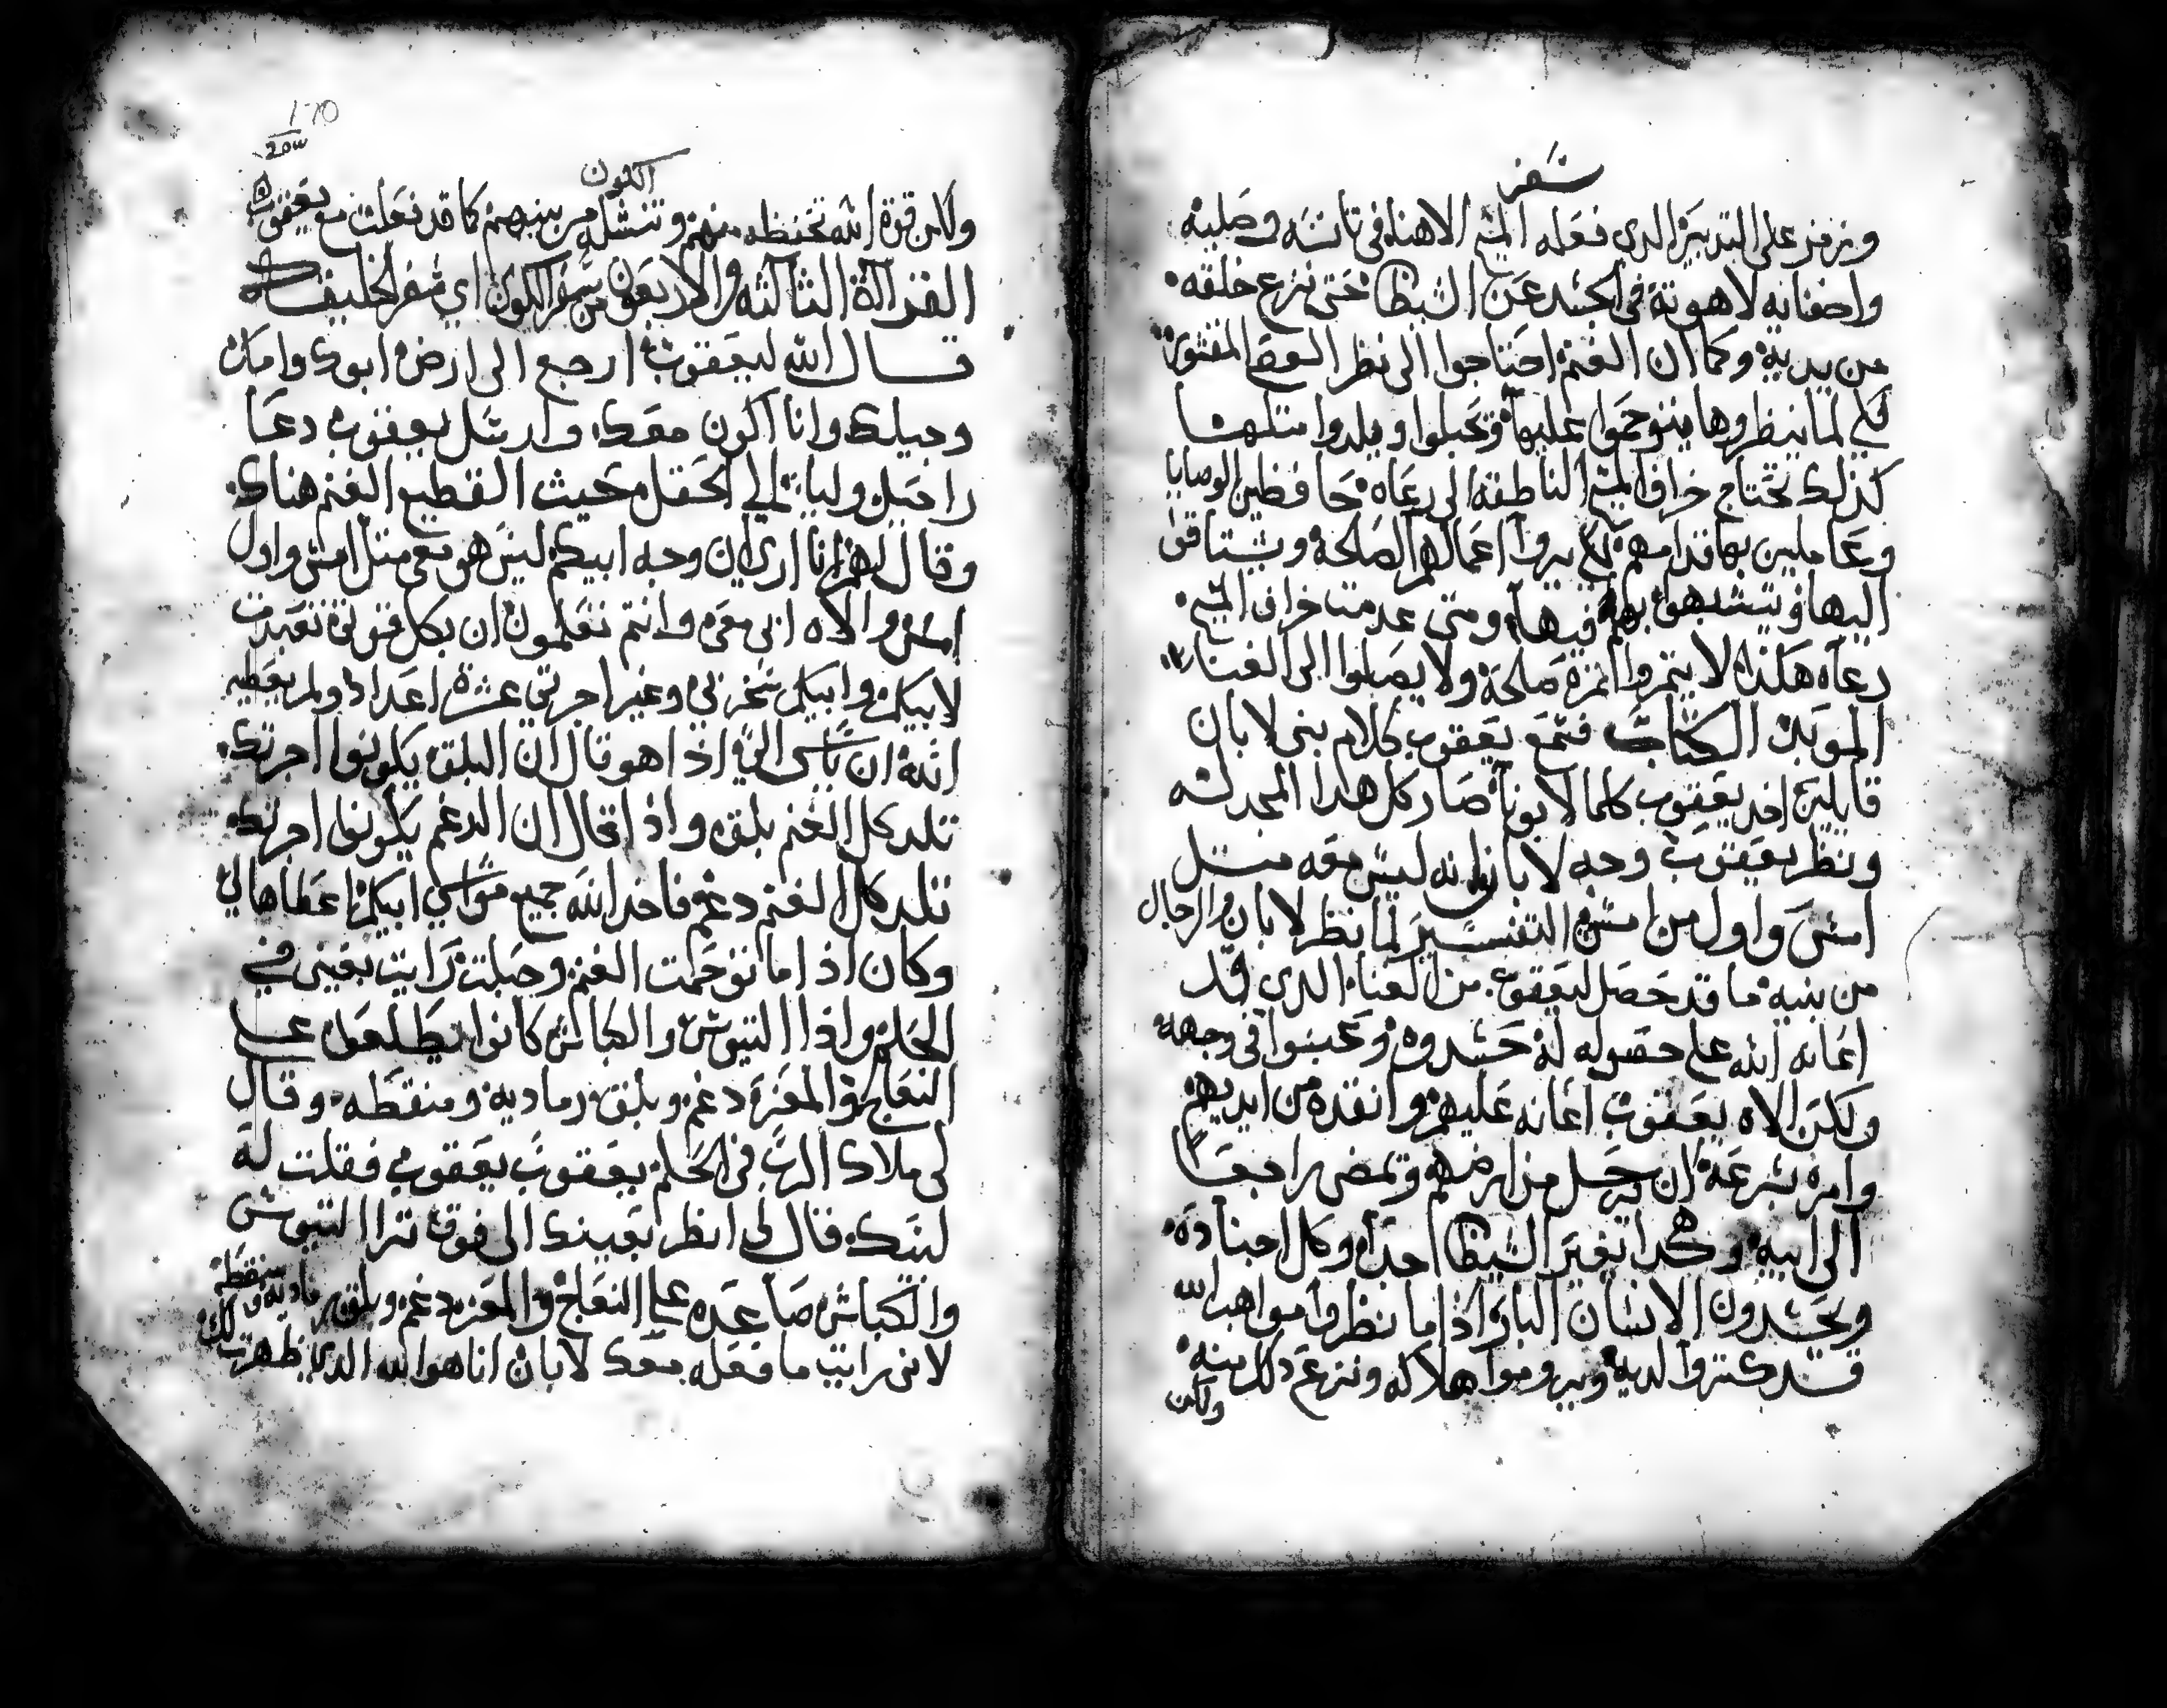 سفر
ورمز على التدبير الدي فعله المسيح الاهنا في تانسه وصلبه
واخفايه لاهوته في الجسد عن الشيطان حتى نزع خلقه
من يديه وكما ان الغنم احتاجوا الى نظر العصي المقشوره
لكي لما ينظروها يتوحموا عليها وتحبلوا ويلدوا متلها
كذلك تحتاج خراف المسيح الناطقه الى رعاه حافظين الوصايا
وعاملين بها قدامهم لكي يروا اعمالهم الصالحه ويشتاقوا
اليها ويتشبهوا بهم فيها ومتى عدمت خراف المسيح
رعاه هكذا لا يتمروا تمره صالحه ولا يصلوا الى الغنا
الموبد الكتاب فسمع يعقوب كلام بني لابان
قايلين اخد يعقوب كلما لابونا صار كل هدا المجد له
ونظر يعقوب وجه لابان وانه ليس معه متل
امس واول من امس التفسير لما نظر لابان والرجال
من بنيه ما قد حصل ليعقوب من الغنا الدي قد
اعانه الله على حصوله له حسدوه وعبسوا في وجهه
ولكن الاه يعقوب اعانه عليهم وانقده من ايديهم
وامره بسرعه ان يرحل من ارضهم وتمضي راجعا
الى ابيه وهكدا يغير الشيطان جدا وكل اجناده
ويحسدون الانسان البار اذا ما نظروا مواهب الله
قد كترو لديه ويروموا هلاكه ونزع دلك منه
ولكن
170
الكون
ولكن قوة الله تحفظه منهم وتنشله من بينهم كما قد فعلت مع يعقوب
القراة التالته والاربعون من سفر الكون اي سفر الخليقه
قال الله ليعقوب ارجع الى ارض ابوك وامك
وجيلك وانا اكون معك وارسل يعقوب دعا
راحيل وليا الى الحقل حيث القطيع الغنم هناك
وقال لهم انا ارى ان وجه ابيكم ليس هو معي متل امس واول
امس والاه ابي معي وانتم تعلمون ان بكل قوتي تعبدت
لابيكم وابيكم سخر بي وغير اجرتي عشرة اعداد ولم يعطيه
الله ان ياسى الي اذا هو قال ان البلق يكونوا اجرتك
تلد كل الغنم بلق واذا قال ان الدغم يكونوا اجرتك
تلد كل الغنم دغم فاخد الله جميع مواسي ابيكم اعطاها لي
وكان اذا ما توحمت الغنم وحبلت رايت بعيني في
الحلم واذا التيوش والكباش كانوا يطلعون على
النعاج والمعز دغم وبلق رماديه ومنقطه وقال
لي ملاك الرب في الحلم يعقوب يعقوب فقلت له
لبيك فقال لي انظر بعينك الى فوق ترا التيوش
والكباش صاعده على النعاج والمعز دغم وبلق رماديه ومنقطه
لاني رايت ما فعله معك لابان انا هو الله الدي ظهرت لك